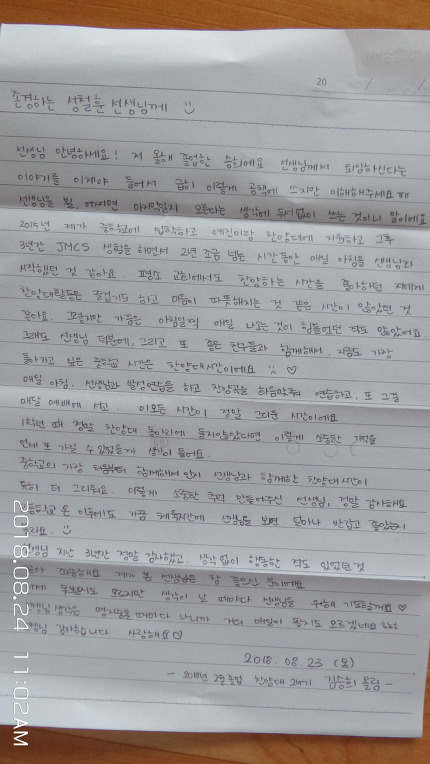 20 / /
존경하는 성철훈 선생님께
선생님 안녕하세요! 저 올해 졸업한 승희에요 선생님께서 퇴임하신다는
이야기를 이제야 들어서 급히 이렇게 공책에 쓰지만 이해해주세요ㅠㅠ
선생님을 뵐, 어쩌면 마지막일지 모른다는 생각에 두서없이 쓰는 것이니 말이에요
2015년 제가 중학교에 입학하고 예진이랑 찬양대에 지원하고 그후
3년간 JMCS 생활을 하면서 2년 조금 넘는 시간동안 매일 아침을 선생님과
시작했던 것 같아요. 평소 교회에서도 찬양하는 시간을 좋아하던 저에게
찬양대활동은 즐겁기도 하고 마음이 따뜻해지는 것 같은 시간이 많았던 것
같아요. 그렇지만 가끔은 아침일찍 매일 나오는 것이 힘들었던 적도 많았어요
그래도 선생님 덕분에, 그리고 또 좋은 친구들과 함께해서, 지금도 가장
돌아가고 싶은 중학교 시간은 찬양대시간이에요 ♡
매일 아침, 선생님과 발성연습을 하고 찬양곡을 화음맞춰 연습하고, 또 그걸
매달 예배에 서고.. 이모든 시간이 정말 그리운 시간이에요
1학년 때 정말 찬양대 동아리에 들지않았다면 이렇게 소중한 기억을
언제 또 가질 수 있었을까 생각이 들어요.
중학교의 가장 처음부터 함께해서인지 선생님과 함께한 찬양대시간이
특히 더 그리워요. 이렇게 소중한 추억 만들어주신 선생님, 정말 감사해요
고등학교 온 이후에도 가끔 체육시간에 선생님을 보면 얼마나 반갑고 좋았는지
몰라요.
선생님 지난 3년간 정말 감사했고, 생각없이 행동한 적도 있었던것
죄송해요 제가 본 선생님은 항상 좋으신 분이에요
모르지만 생각이 날 때마다 선생님을 위해 기도할게요 ♡
선생님생각은 명치올때마다 나니까 거의 매일이 될지도 모르겠네요 ㅎㅎ
선생님 감사합니다 사랑해요♡
2018. 08. 23 (목)
- 2018년 2월 졸업 찬양대 김승희 올림 -
2018.08.24 11:02AM